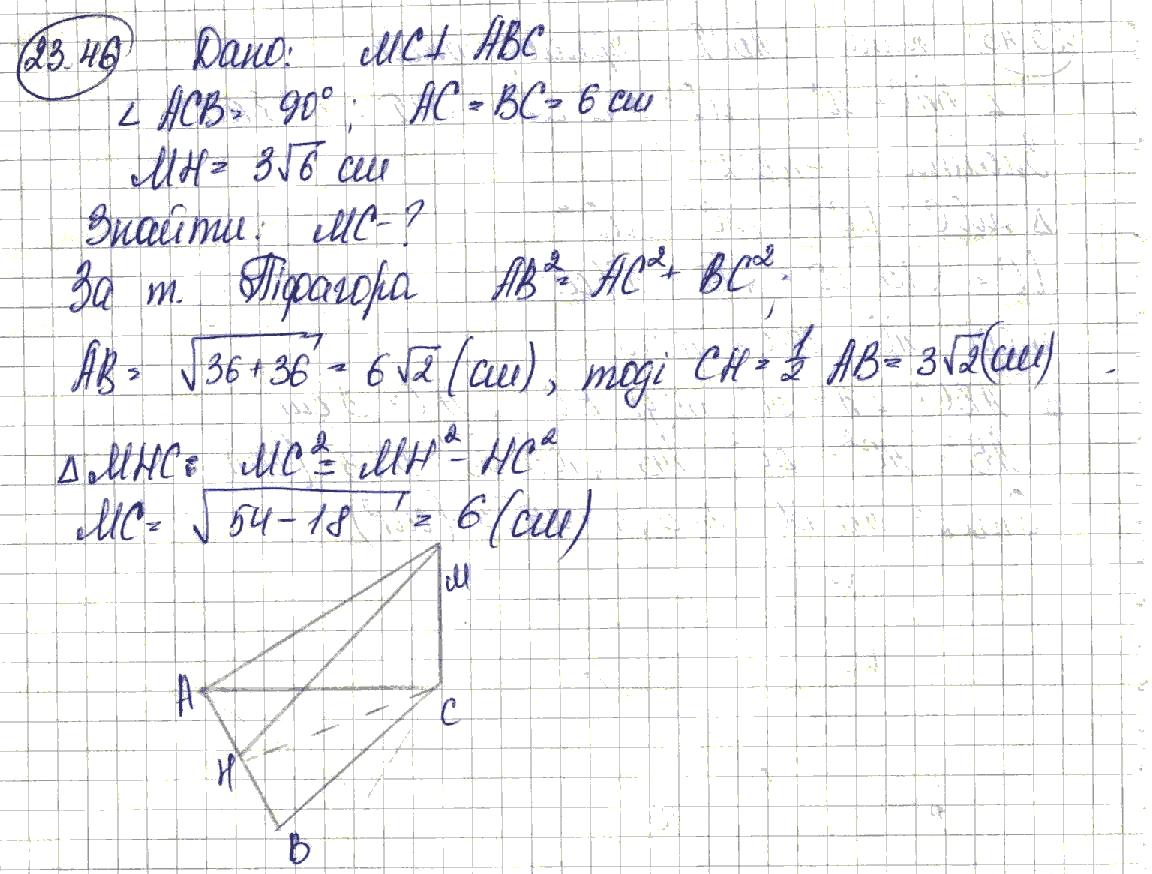 23.46 Дано: MC ⊥ ABC
∠ ACB = 90°; AC = BC = 6 см
MH = 3√6 см
Знайти: MC - ?
За т. Піфагора AB² = AC² + BC²;
AB = √36+36 = 6√2 (см), тоді CH = 1/2 AB = 3√2 (см)
Δ MHC: MC² = MH² - HC²
MC = √54-18 = 6 (см)
M
A
C
H
B